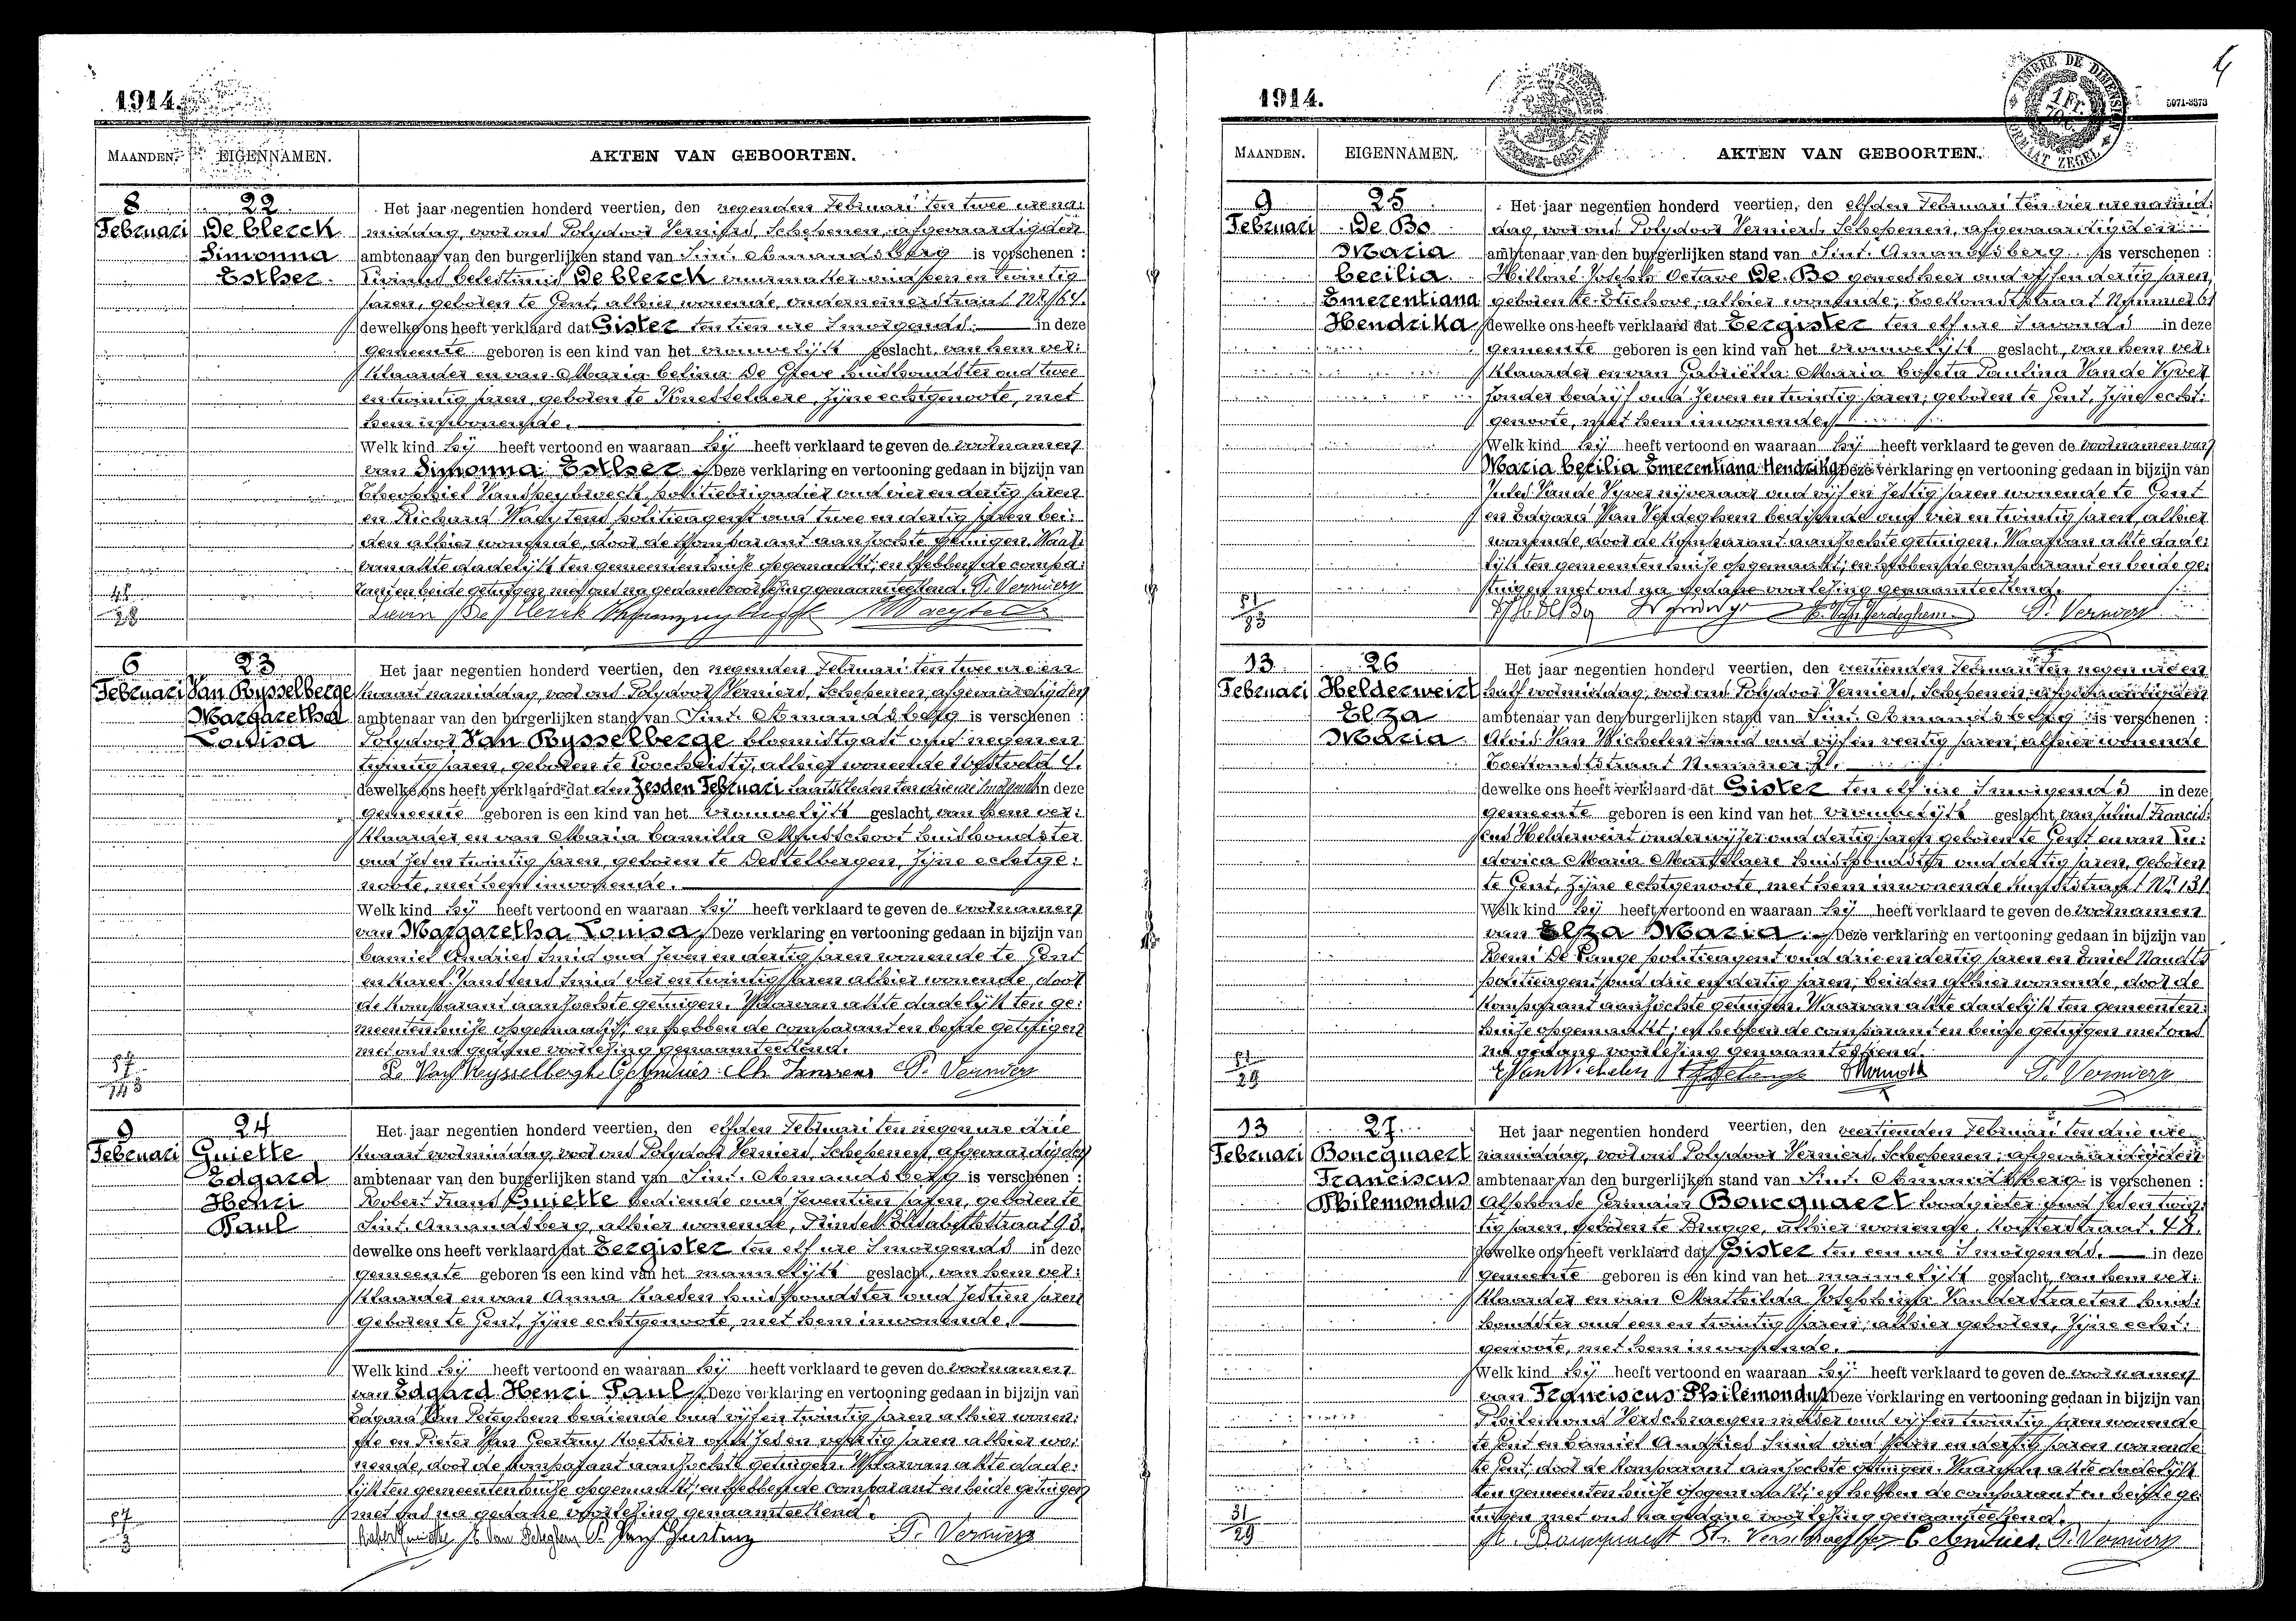 1914.
MAANDEN. EIGENNAMEN. AKTEN VAN GEBOORTEN.
8 22 Het jaar negentien honderd veertien, den negenden Februari ten twee ure na:
Februari De Clerck middag, voor ons Polydoor Verniers, Schepenen, afgevaardigden
Simonna ambtenaar van den burgerlijken stand van Sint. Amandsberg is verschenen :
Esther Livinus Celestinus De Clerck vuurmaker oud en twintig
jaren, geboren te Gent, alhier wonende, straat Nr. 164.
dewelke ons heeft verklaard dat Gister ten tien ure 's morgends. in deze
gemeente geboren is een kind van het vrouwelijk geslacht, van hem ver:
klaarder en van Maria Celina De Greve huishoudster oud twee
en twintig jaren, geboren te Knesselaere, zijne echtgenoote, met
hem inwonende.
Welk kind hij heeft vertoond en waaraan hij heeft verklaard te geven de voornamen
van Simonna Esther. Deze verklaring en vertooning gedaan in bijzijn van
Theophiel politiebrigadier oud vier en dertig jaren
en Richard Waeytens politieagent oud twee en dertig jaren bei:
den alhier wonende, door de komparant aanzochte getuigen. Waar:
van akte dadelijk ten gemeentenhuize opgemaakt; en hebben de compa:
rant en beide getuigen met ons na gedane voorlezing genaamteekend. P. Verniers
6 23 Het jaar negentien honderd veertien, den negenden Februari ten twee ure een
Februari Van Rysselberge kwaart namiddag, voor ons Polydoor Verniers, Schepenen, afgevaardigden
Margaretha ambtenaar van den burgerlijken stand van Sint. Amandsberg is verschenen :
Louisa Polydoor Van Rysselberge bloemistgast oud negen en
twintig jaren, geboren te Loochristy, alhier wonende 4.
dewelke ons heeft verklaard dat den Zesden Februari laatstleden ten drie ure 's morgends in deze
gemeente geboren is een kind van het vrouwelijk geslacht, van hem ver:
klaarder en van Maria Camilla Musschoot huishoudster
oud zes en twintig jaren, geboren te Destelbergen, zijne echtge:
noote, met hem inwonende.
Welk kind hij heeft vertoond en waaraan hij heeft verklaard te geven de voornamen
van Margaretha Louisa. Deze verklaring en vertooning gedaan in bijzijn van
Camiel Andries Smid oud zeven en dertig jaren wonende te Gent
en Karel Janssens Smid vier en twintig jaren alhier wonende, door
de komparant aanzochte getuigen. Waarvan akte dadelijk ten ge:
meentenhuize opgemaakt; en hebben de comparant en beide getuigen
met ons na gedane voorlezing genaamteekend.
P. Van Rysselberghe C. Andries Ch Janssens P. Verniers
9 24 Het jaar negentien honderd veertien, den elfden Februari ten negen ure drie
Februari Guiette kwaart voormiddag, voor ons Polydoor Verniers, Schepenen, afgevaardigden
Edgard ambtenaar van den burgerlijken stand van Sint. Amandsberg is verschenen :
Henri Robert Frans Guiette bediende oud zeventien jaren, geboren te
Paul Sint. Amandsberg, alhier wonende, Prinses Elisabethstraat 93.
dewelke ons heeft verklaard dat Eergister ten elf ure 's morgends in deze
gemeente geboren is een kind van het mannelijk geslacht, van hem ver:
klaarder en van Anna huishoudster oud zestien jaren
geboren te Gent, zijne echtgenoote, met hem inwonende.
Welk kind hij heeft vertoond en waaraan hij heeft verklaard te geven de voornamen
van Edgard Henri Paul. Deze verklaring en vertooning gedaan in bijzijn van
Edgard Van Peteghem bediende oud vijf en twintig jaren alhier wonen:
de en Pieter Van Geertruy koetsier oud zes en veertig jaren alhier wo:
nende, door de komparant aanzochte getuigen. Waarvan akte dade:
lijk ten gemeentenhuize opgemaakt; en hebben de comparant en beide getuigen
met ons na gedane voorlezing genaamteekend.
P. Verniers
1914.
TIMBRE DE DIMENSION
1 Fr.
FORMAAT ZEGEL
5071-3373
MAANDEN. EIGENNAMEN. AKTEN VAN GEBOORTEN.
9 25 Het jaar negentien honderd veertien, den elfden Februari ten vier ure namid:
Februari De Bo dag, voor ons Polydoor Verniers, Schepenen, afgevaardigden
Maria ambtenaar van den burgerlijken stand van Sint. Amandsberg is verschenen :
Cecilia Joseph Octave De Bo geneesheer oud vijf en dertig jaren,
Emerentiana geboren te Etichove, alhier wonende, Toekomststraat Nummer 61
Hendrika dewelke ons heeft verklaard dat Eergister ten elf ure 's avonds in deze
gemeente geboren is een kind van het vrouwelijk geslacht, van hem ver:
klaarder en van Gabriëlla Maria Paulina Van de Vyver
zonder bedrijf oud zeven en twintig jaren; geboren te Gent, zijne echt:
genoote, met hem inwonende.
Welk kind hij heeft vertoond en waaraan hij heeft verklaard te geven de voornamen van
Maria Cecilia Emerentiana Hendrika Deze verklaring en vertooning gedaan in bijzijn van
Jules Van de Vyver nijveraar oud vijf en zestig jaren wonende te Gent
en Edgard Van Verdeghem bediende oud vier en twintig jaren, alhier
wonende, door de komparant aanzochte getuigen. Waarvan akte dade:
lijk ten gemeentenhuize opgemaakt; en hebben de comparant en beide ge:
tuigen met ons na gedane voorlezing genaamteekend.
E. Van Verdeghem P. Verniers
13 26 Het jaar negentien honderd veertien, den veertienden Februari ten negen ure en
Februari Helderweirt half voormiddag, voor ons Polydoor Verniers, Schepenen, afgevaardigden
Elza ambtenaar van den burgerlijken stand van Sint. Amandsberg is verschenen :
Maria Aloïs Van Wichelen oud vijf en veertig jaren, alhier wonende
Toekomststraat Nummer
dewelke ons heeft verklaard dat Gister ten elf ure 's morgends in deze
gemeente geboren is een kind van het vrouwelijk geslacht, van Julius Francis:
cus Helderweirt onderwijzer oud dertig jaren geboren te Gent en van Lu:
dovica Maria huishoudster oud dertig jaren, geboren
te Gent, zijne echtgenoote, met hem inwonende Nr. 131
Welk kind hij heeft vertoond en waaraan hij heeft verklaard te geven de voornamen
van Elza Maria. Deze verklaring en vertooning gedaan in bijzijn van
Remi De Lange politieagent oud drie en dertig jaren en Emiel Naudts
politieagent oud drie en dertig jaren, beiden alhier wonende, door de
komparant aanzochte getuigen. Waarvan akte dadelijk ten gemeenten:
huize opgemaakt; en hebben de comparant en beide getuigen met ons
na gedane voorlezing genaamteekend.
Van Wichelen P. Verniers
13 27 Het jaar negentien honderd veertien, den veertienden Februari ten drie ure
Februari Boucquaert namiddag, voor ons Polydoor Verniers, Schepenen, afgevaardigden
Franciscus ambtenaar van den burgerlijken stand van Sint. Amandsberg is verschenen :
Philemondus Alphonse Germain Boucquaert loodgieter oud zes en twin:
tig jaren, geboren te Brugge, alhier wonende,
dewelke ons heeft verklaard dat Gister ten een ure 's morgends. in deze
gemeente geboren is een kind van het mannelijk geslacht, van hem ver:
klaarder en van Mathilda Josephina Van der Straeten huis:
houdster oud een en twintig jaren; alhier geboren, zijne echt:
genoote, met hem inwonende.
Welk kind hij heeft vertoond en waaraan hij heeft verklaard te geven de voornamen
van Franciscus Philemondus Deze verklaring en vertooning gedaan in bijzijn van
Philemond oud vijf en twintig jaren wonende
te Gent en Camiel Andries Smid oud zeven en dertig jaren wonende
te Gent, door de komparant aanzochte getuigen. Waarvan akte dadelijk
ten gemeentenhuize opgemaakt; en hebben de comparant en beide ge
tuigen met ons na gedane voorlezing genaamteekend.
A. Boucquaert C. Andries. P. Verniers